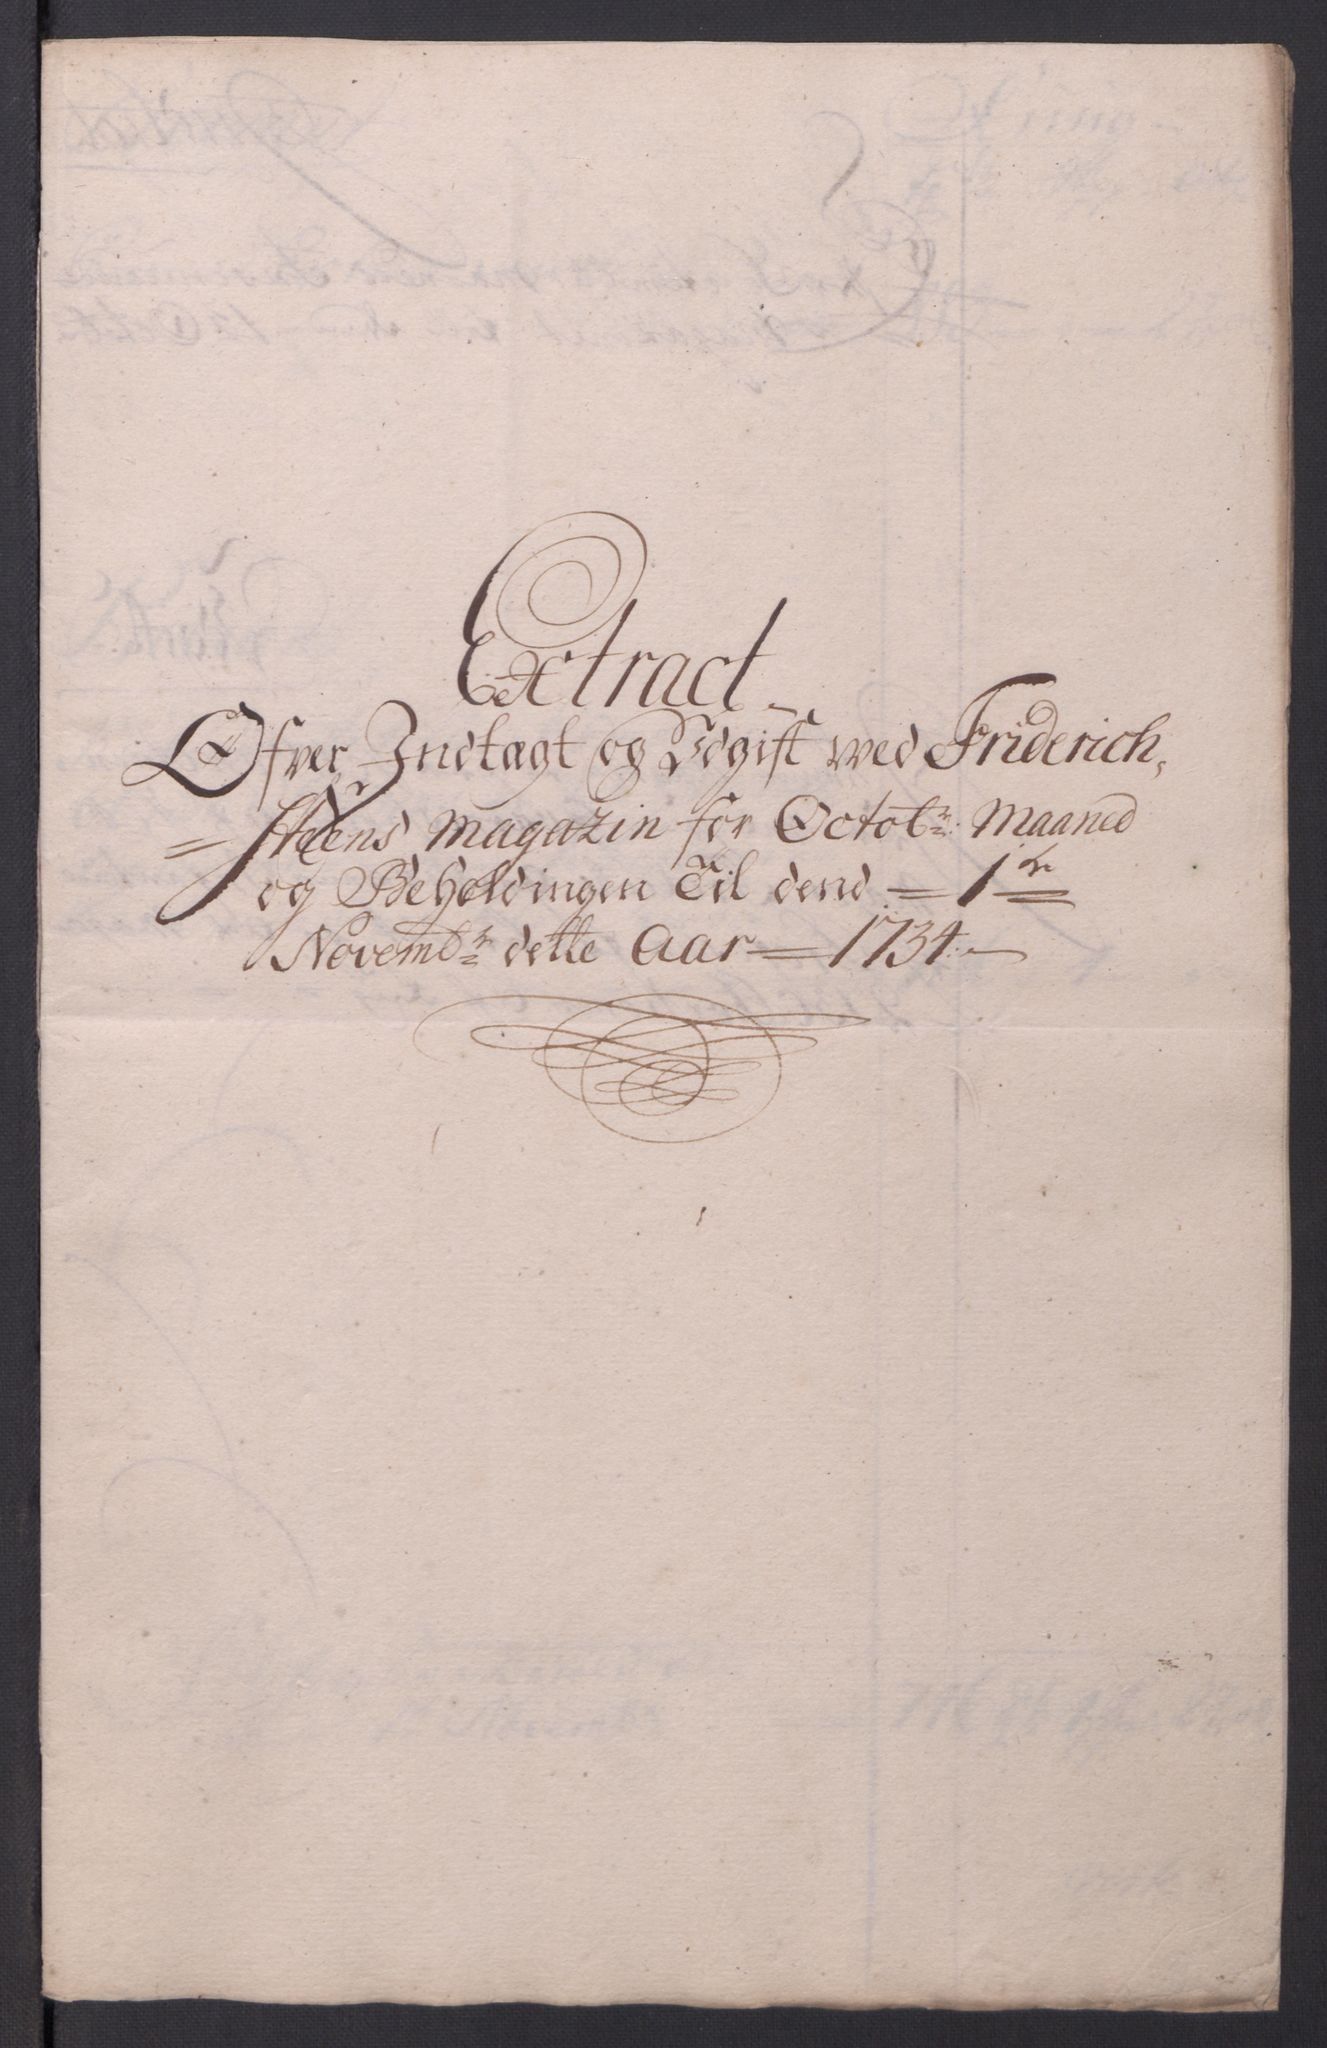 Extract
Ofver Indtægt og Udgift wed Friderich,
= Steens Magazin for Octobr: Maaned
og Beholdingen Til dend = 1te
Novembr: dette Aar = 1734.